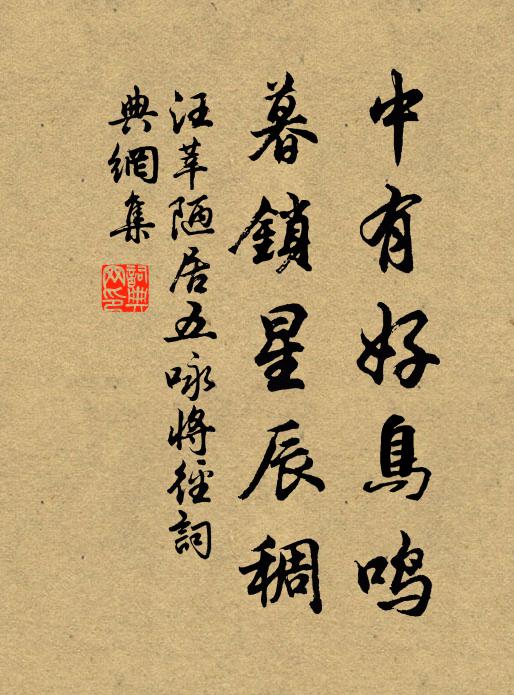 中有好鳥鳴
暮鎖星辰稠
汪莘陋居五咏將徑詞
典網集
詞典網印